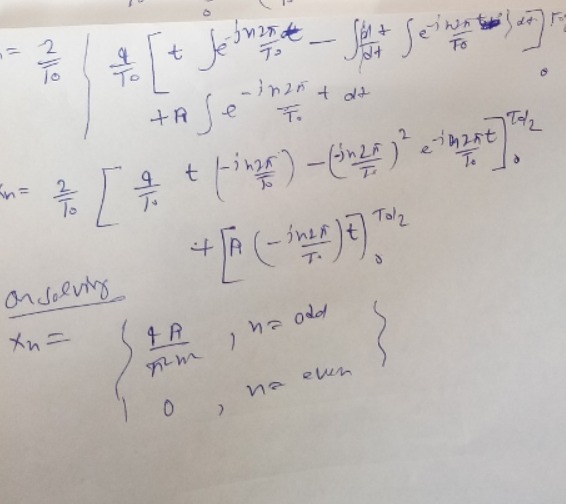 n = 2/T₀ { 4/T₀ [ t ∫ e^{-jn2π/T₀ t} - ∫ d/dt t ∫ e^{-jn2π/T₀ t} } dt ]
+ A ∫ e^{-jn2π/T₀ t} dt
xn = 2/T₀ [ 4/T₀ t (-jn2π/T₀) - (-jn2π/T₀)² e^{-jn2π/T₀ t} ]₀^{T₀/2}
+ [ A (-jn2π/T₀) t ]₀^{T₀/2}
on solving
xn = { 4A/π²n² , n = odd
0 , n = even }